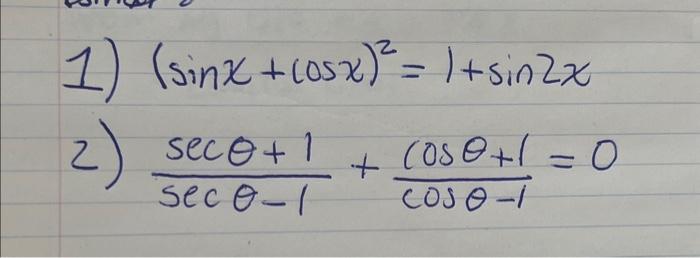 1) (sinx + cosx)² = 1 + sin2x
2) (secθ + 1)/(secθ - 1) + (cosθ + 1)/(cosθ - 1) = 0